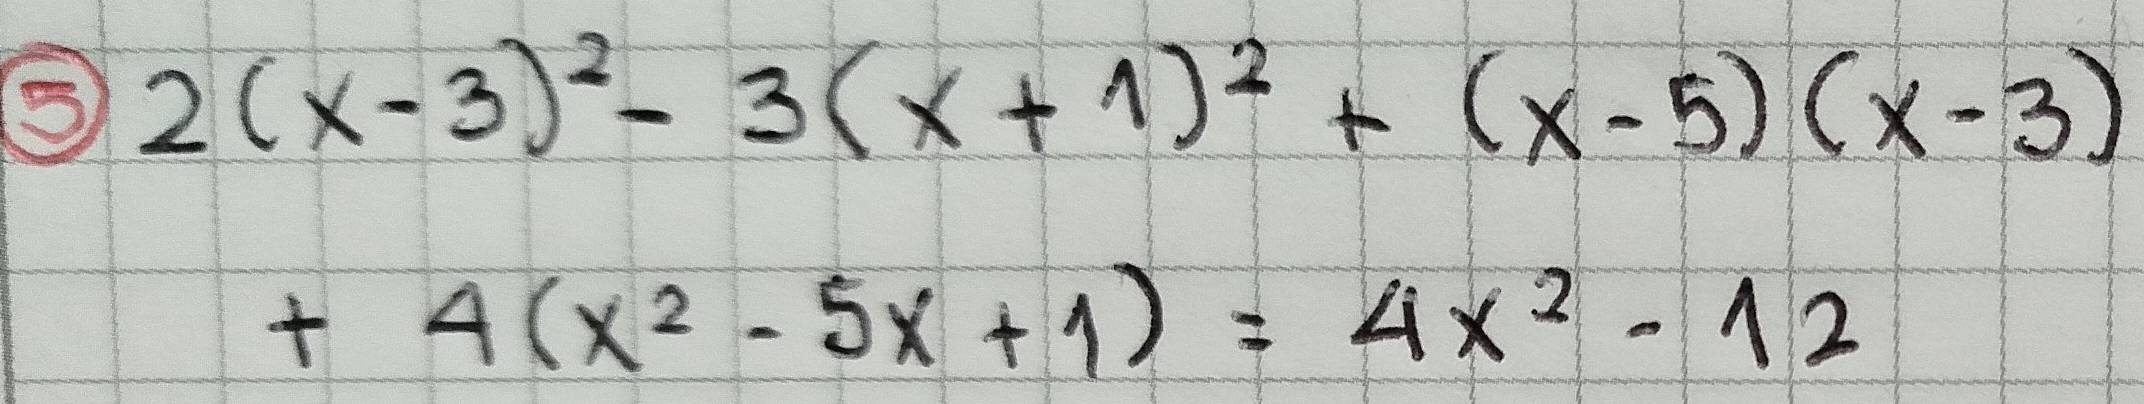 ⑤ 2(x-3)² - 3(x+1)² + (x-5)(x-3)
+ 4(x² - 5x + 1) = 4x² - 12